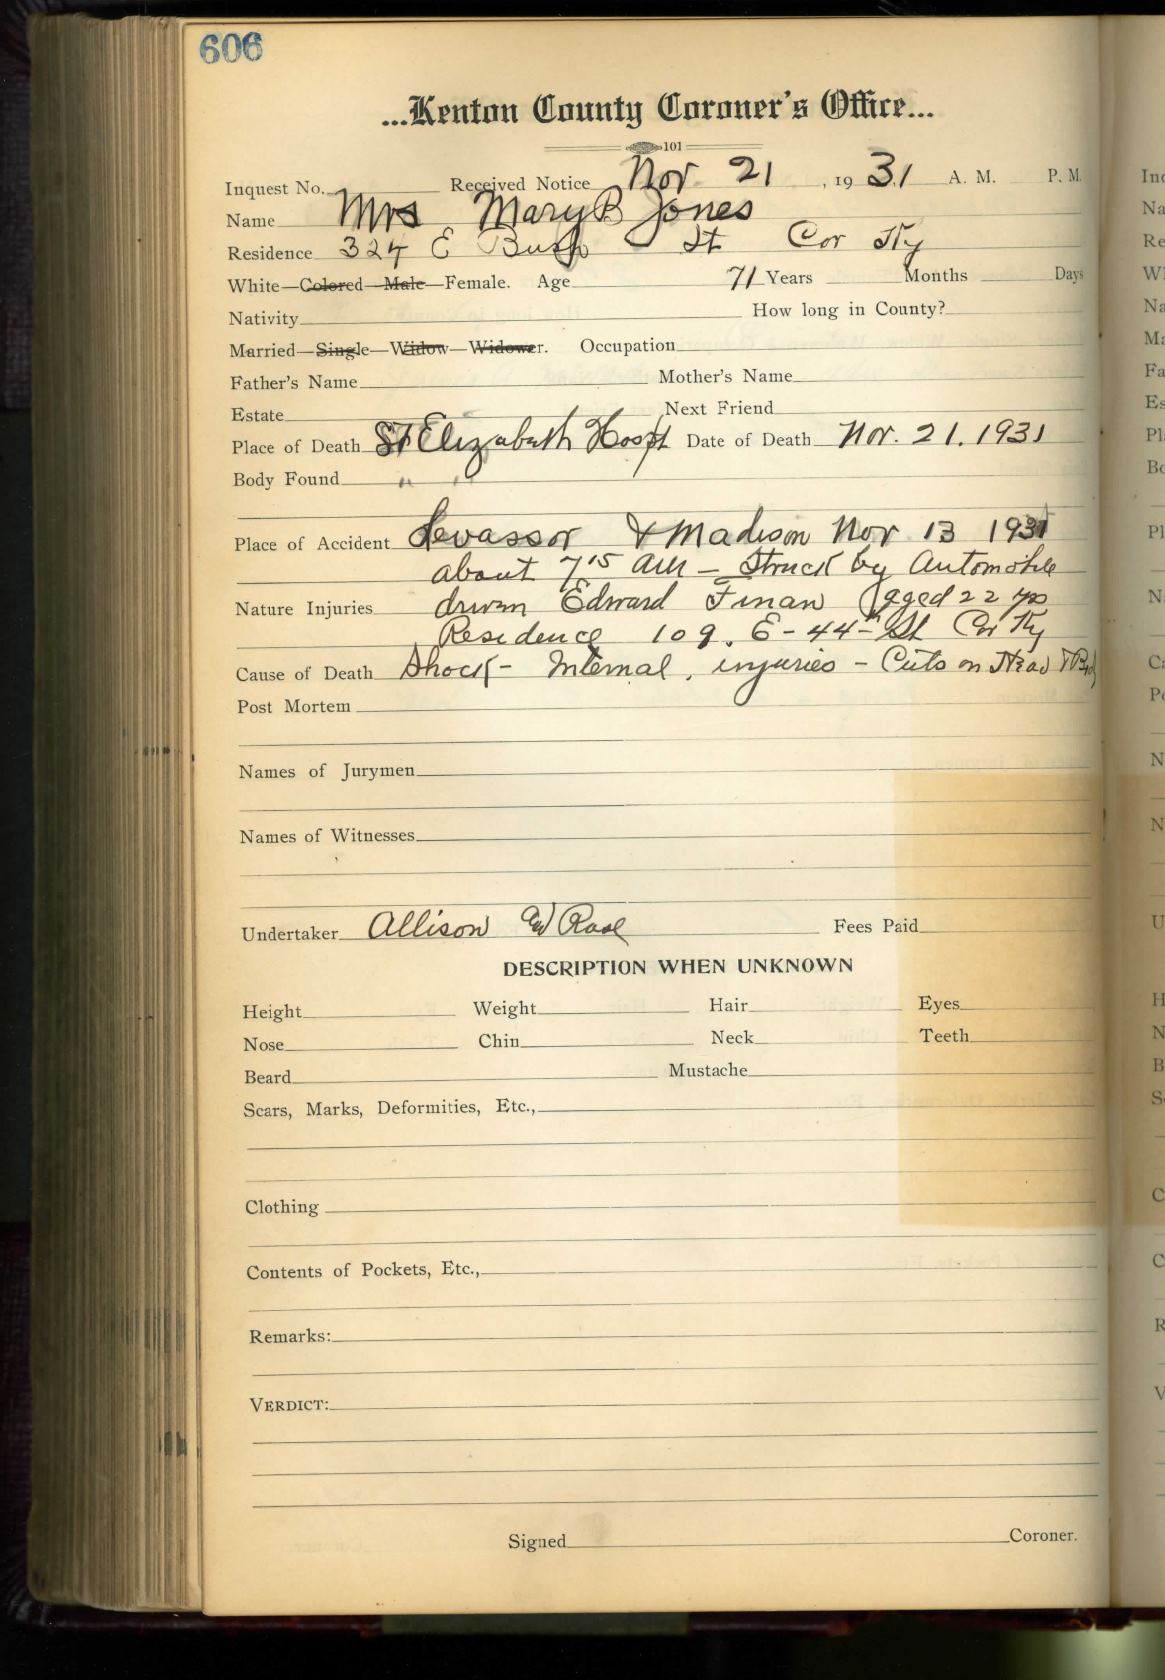 606
...Kenton County Coroner's Office...
101
Inquest No. Received Notice Nov 21, 1931 A. M. P. M.
Name Mrs Mary B Jones
Residence 324 E Bush St Cov Ky
White—Colored—Male—Female. Age 71 Years Months Days
Nativity How long in County?
Married—Single—Widow—Widower. Occupation
Father's Name Mother's Name
Estate Next Friend
Place of Death St Elizabeth Hospt Date of Death Nov. 21. 1931
Body Found " "
Place of Accident Levassor & Madison Nov 13 1931
about 7 15 AM – Struck by Automobile
Nature Injuries driven Edward Finan (aged 22 yrs
Residence 109. E-44th St Cov Ky
Cause of Death Shock – Internal, injuries – Cuts on Head &
Post Mortem
Names of Jurymen
Names of Witnesses
Undertaker Allison & Rose Fees Paid
DESCRIPTION WHEN UNKNOWN
Height Weight Hair Eyes
Nose Chin Neck Teeth
Beard Mustache
Scars, Marks, Deformities, Etc.,
Clothing
Contents of Pockets, Etc.,
Remarks:
VERDICT:
Signed Coroner.